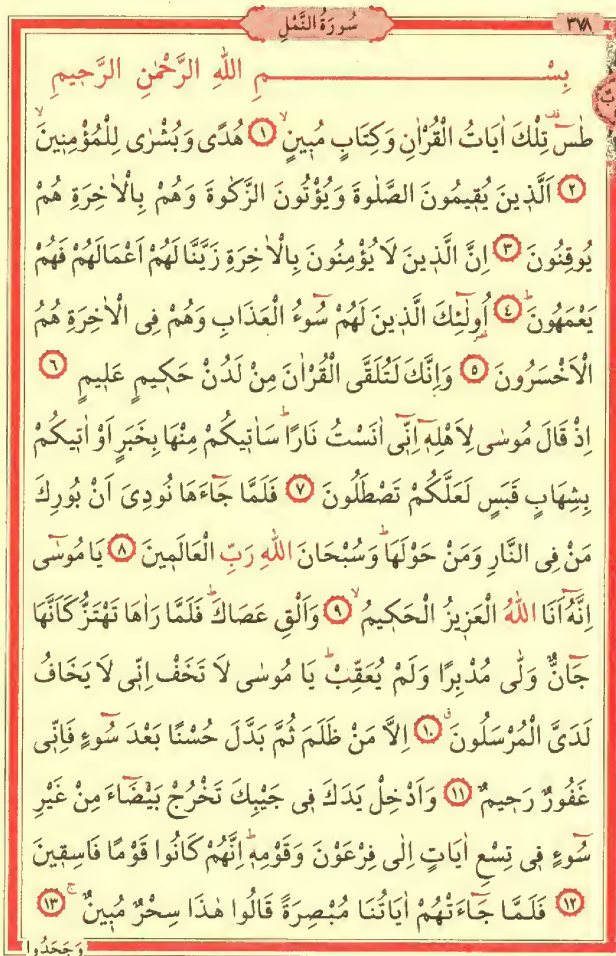 سُورَةُ النَّمْلِ ٣٧٨
بِسْــــــــمِ اللهِ الرَّحْمٰنِ الرَّحِيمِ
طٰسٓ تِلْكَ اٰيَاتُ الْقُرْاٰنِ وَكِتَابٍ مُبٖينٍۙ ١ هُدًى وَبُشْرٰى لِلْمُؤْمِنٖينَۙ
٢ اَلَّذٖينَ يُقٖيمُونَ الصَّلٰوةَ وَيُؤْتُونَ الزَّكٰوةَ وَهُمْ بِالْاٰخِرَةِ هُمْ
يُوقِنُونَ ٣ اِنَّ الَّذٖينَ لَا يُؤْمِنُونَ بِالْاٰخِرَةِ زَيَّنَّا لَهُمْ اَعْمَالَهُمْ فَهُمْ
يَعْمَهُونَؕ ٤ اُولٰٓئِكَ الَّذٖينَ لَهُمْ سُٓوءُ الْعَذَابِ وَهُمْ فِى الْاٰخِرَةِ هُمُ
الْاَخْسَرُونَ ٥ وَاِنَّكَ لَتُلَقَّى الْقُرْاٰنَ مِنْ لَدُنْ حَكٖيمٍ عَلٖيمٍ ٦
اِذْ قَالَ مُوسٰى لِاَهْلِهٖٓ اِنّٖٓى اٰنَسْتُ نَارًاؕ سَاٰتٖيكُمْ مِنْهَا بِخَبَرٍ اَوْ اٰتٖيكُمْ
بِشِهَابٍ قَبَسٍ لَعَلَّكُمْ تَصْطَلُونَ ٧ فَلَمَّا جَٓاءَهَا نُودِىَ اَنْ بُورِكَ
مَنْ فِى النَّارِ وَمَنْ حَوْلَهَاؕ وَسُبْحَانَ اللهِ رَبِّ الْعَالَمٖينَ ٨ يَا مُوسٰٓى
اِنَّهُٓ اَنَا اللهُ الْعَزٖيزُ الْحَكٖيمُۙ ٩ وَاَلْقِ عَصَاكَؕ فَلَمَّا رَاٰهَا تَهْتَزُّ كَاَنَّهَا
جَٓانٌّ وَلّٰى مُدْبِرًا وَلَمْ يُعَقِّبْؕ يَا مُوسٰى لَا تَخَفْ اِنّٖى لَا يَخَافُ
لَدَىَّ الْمُرْسَلُونَ ١٠ اِلَّا مَنْ ظَلَمَ ثُمَّ بَدَّلَ حُسْنًا بَعْدَ سُٓوءٍ فَاِنّٖى
غَفُورٌ رَحٖيمٌ ١١ وَاَدْخِلْ يَدَكَ فٖى جَيْبِكَ تَخْرُجْ بَيْضَٓاءَ مِنْ غَيْرِ
سُٓوءٍ فٖى تِسْعِ اٰيَاتٍ اِلٰى فِرْعَوْنَ وَقَوْمِهٖؕ اِنَّهُمْ كَانُوا قَوْمًا فَاسِقٖينَ
١٢ فَلَمَّا جَٓاءَتْهُمْ اٰيَاتُنَا مُبْصِرَةً قَالُوا هٰذَا سِحْرٌ مُبٖينٌۚ ١٣
وَجَحَدُوا